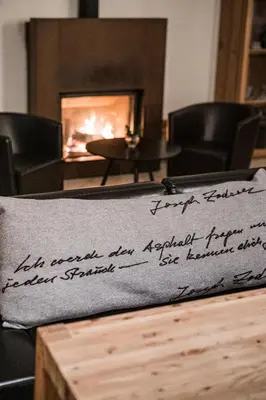 Joseph Zoderer
Ich werde den Asphalt fragen und
jeden Strauch — Sie kennen dich
Joseph Zod